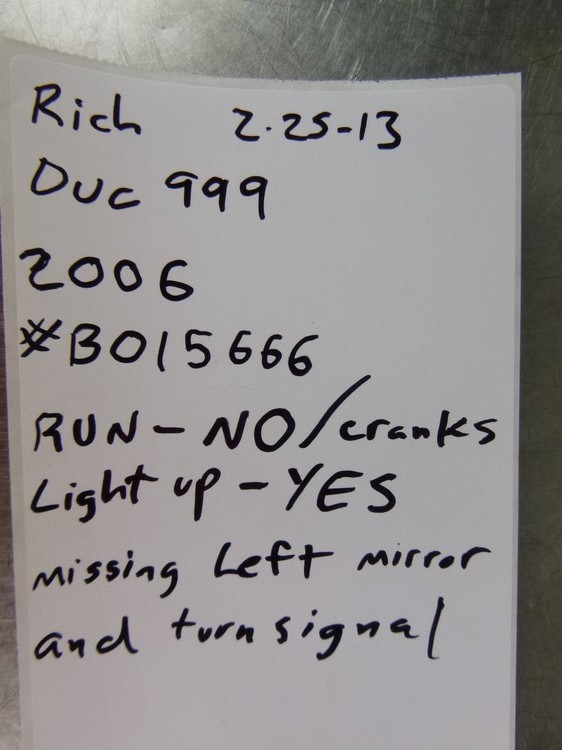 Rich 2.25-13
Duc 999
2006
#B015666
RUN - NO/cranks
Light up - YES
missing Left mirror
and turn signal